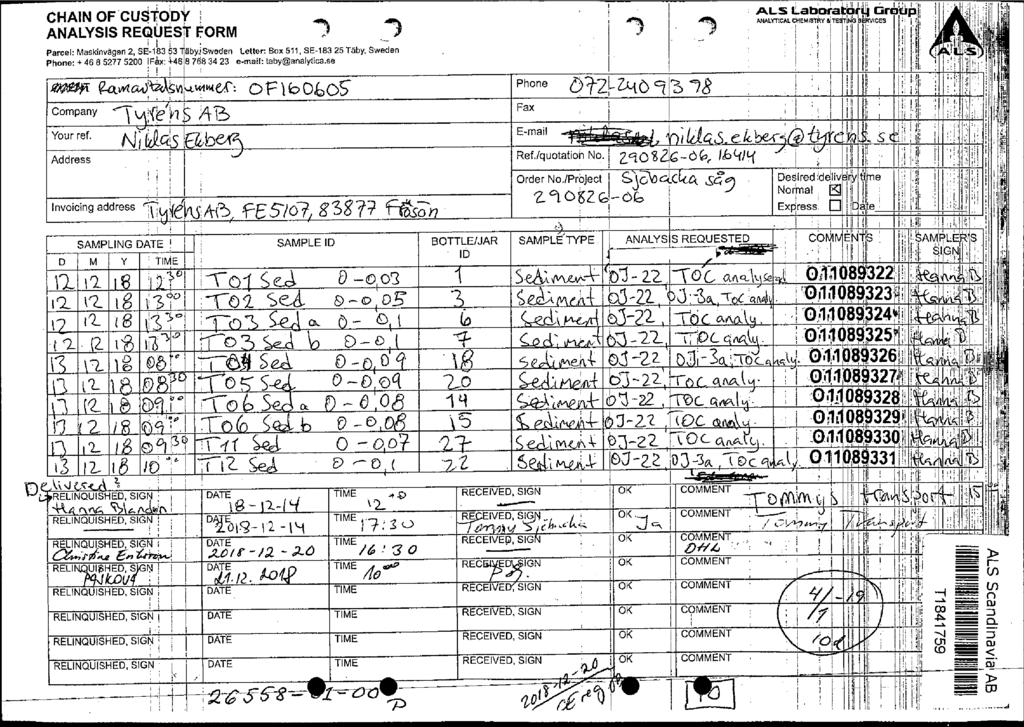 CHAIN OF CUSTODY
ANALYSIS REQUEST FORM
ALS Laboratory Group
ANALYTICAL CHEMISTRY & TESTING SERVICES
ALS
Parcel: Maskinvägen 2, SE-183 53 Täby, Sweden Letter: Box 511, SE-183 25 Täby, Sweden
Phone: + 46 8 5277 5200 Fax: +46 8 768 34 23 e-mail: taby@analytica.se
Ramavtalsnummer: OF160605
Phone 072-240 93 98
Company Tyréns AB
Fax
Your ref. Niklas Ekberg
E-mail niklas.ekberg@tyrens.se
Address
Ref./quotation No. 290826-06, 16414
Order No./Project Sjöbacka såg
290826-06
Desired delivery time
Normal ☒
Express ☐ Date
Invoicing address Tyréns AB, FE5107, 83877 Frösön
SAMPLING DATE SAMPLE ID BOTTLE/JAR ID SAMPLE TYPE ANALYSIS REQUESTED COMMENTS SAMPLER'S SIGN
D M Y TIME
12 12 18 12 30 T01 Sed 0-0,03 1 Sediment OJ-22, TOC 011089322 Hanna B
12 12 18 13 00 T02 Sed 0-0,05 3 Sediment OJ-22, OJ-3a, TOC analy. 011089323 Hanna B
12 12 18 13 30 T03 Sed a 0-0,1 6 Sediment OJ-22, TOC analy. 011089324 Hanna B
12 12 18 13 30 T03 Sed b 0-0,1 7 Sediment OJ-22, TOC analy. 011089325 Hanna B
13 12 18 08 00 T04 Sed 0-0,09 18 Sediment OJ-22, OJ-3a, TOC analy. 011089326 Hanna B
13 12 18 08 30 T05 Sed 0-0,09 20 Sediment OJ-22, TOC analy. 011089327 Hanna B
13 12 18 09 00 T06 Sed a 0-0,08 14 Sediment OJ-22, TOC analy. 011089328 Hanna B
13 12 18 09 00 T06 Sed b 0-0,08 15 Sediment OJ-22, TOC analy. 011089329 Hanna B
13 12 18 09 30 T11 Sed 0-0,07 27 Sediment OJ-22, TOC analy. 011089330 Hanna B
13 12 18 10 00 T12 Sed 0-0,1 22 Sediment OJ-22, OJ-3a, TOC analy. 011089331 Hanna B
Delivered:
RELINQUISHED, SIGN Hanna Blandon DATE 18-12-14 TIME 12 RECEIVED, SIGN OK COMMENT Tommys transport
RELINQUISHED, SIGN DATE 2018-12-14 TIME 17:30 RECEIVED, SIGN Tommy OK Ja COMMENT Tommy Transport
RELINQUISHED, SIGN Christine DATE 2018-12-20 TIME 16:30 RECEIVED, SIGN OK COMMENT DHL
RELINQUISHED, SIGN DATE 21.12.2018 TIME 10 00 RECEIVED, SIGN OK COMMENT
RELINQUISHED, SIGN DATE TIME RECEIVED, SIGN OK COMMENT
RELINQUISHED, SIGN DATE TIME RECEIVED, SIGN OK COMMENT
RELINQUISHED, SIGN DATE TIME RECEIVED, SIGN OK COMMENT
RELINQUISHED, SIGN DATE TIME RECEIVED, SIGN OK COMMENT
4/1-19
10d
ALS Scandinavia AB
T1841759
2018-12-20
CE reg
10